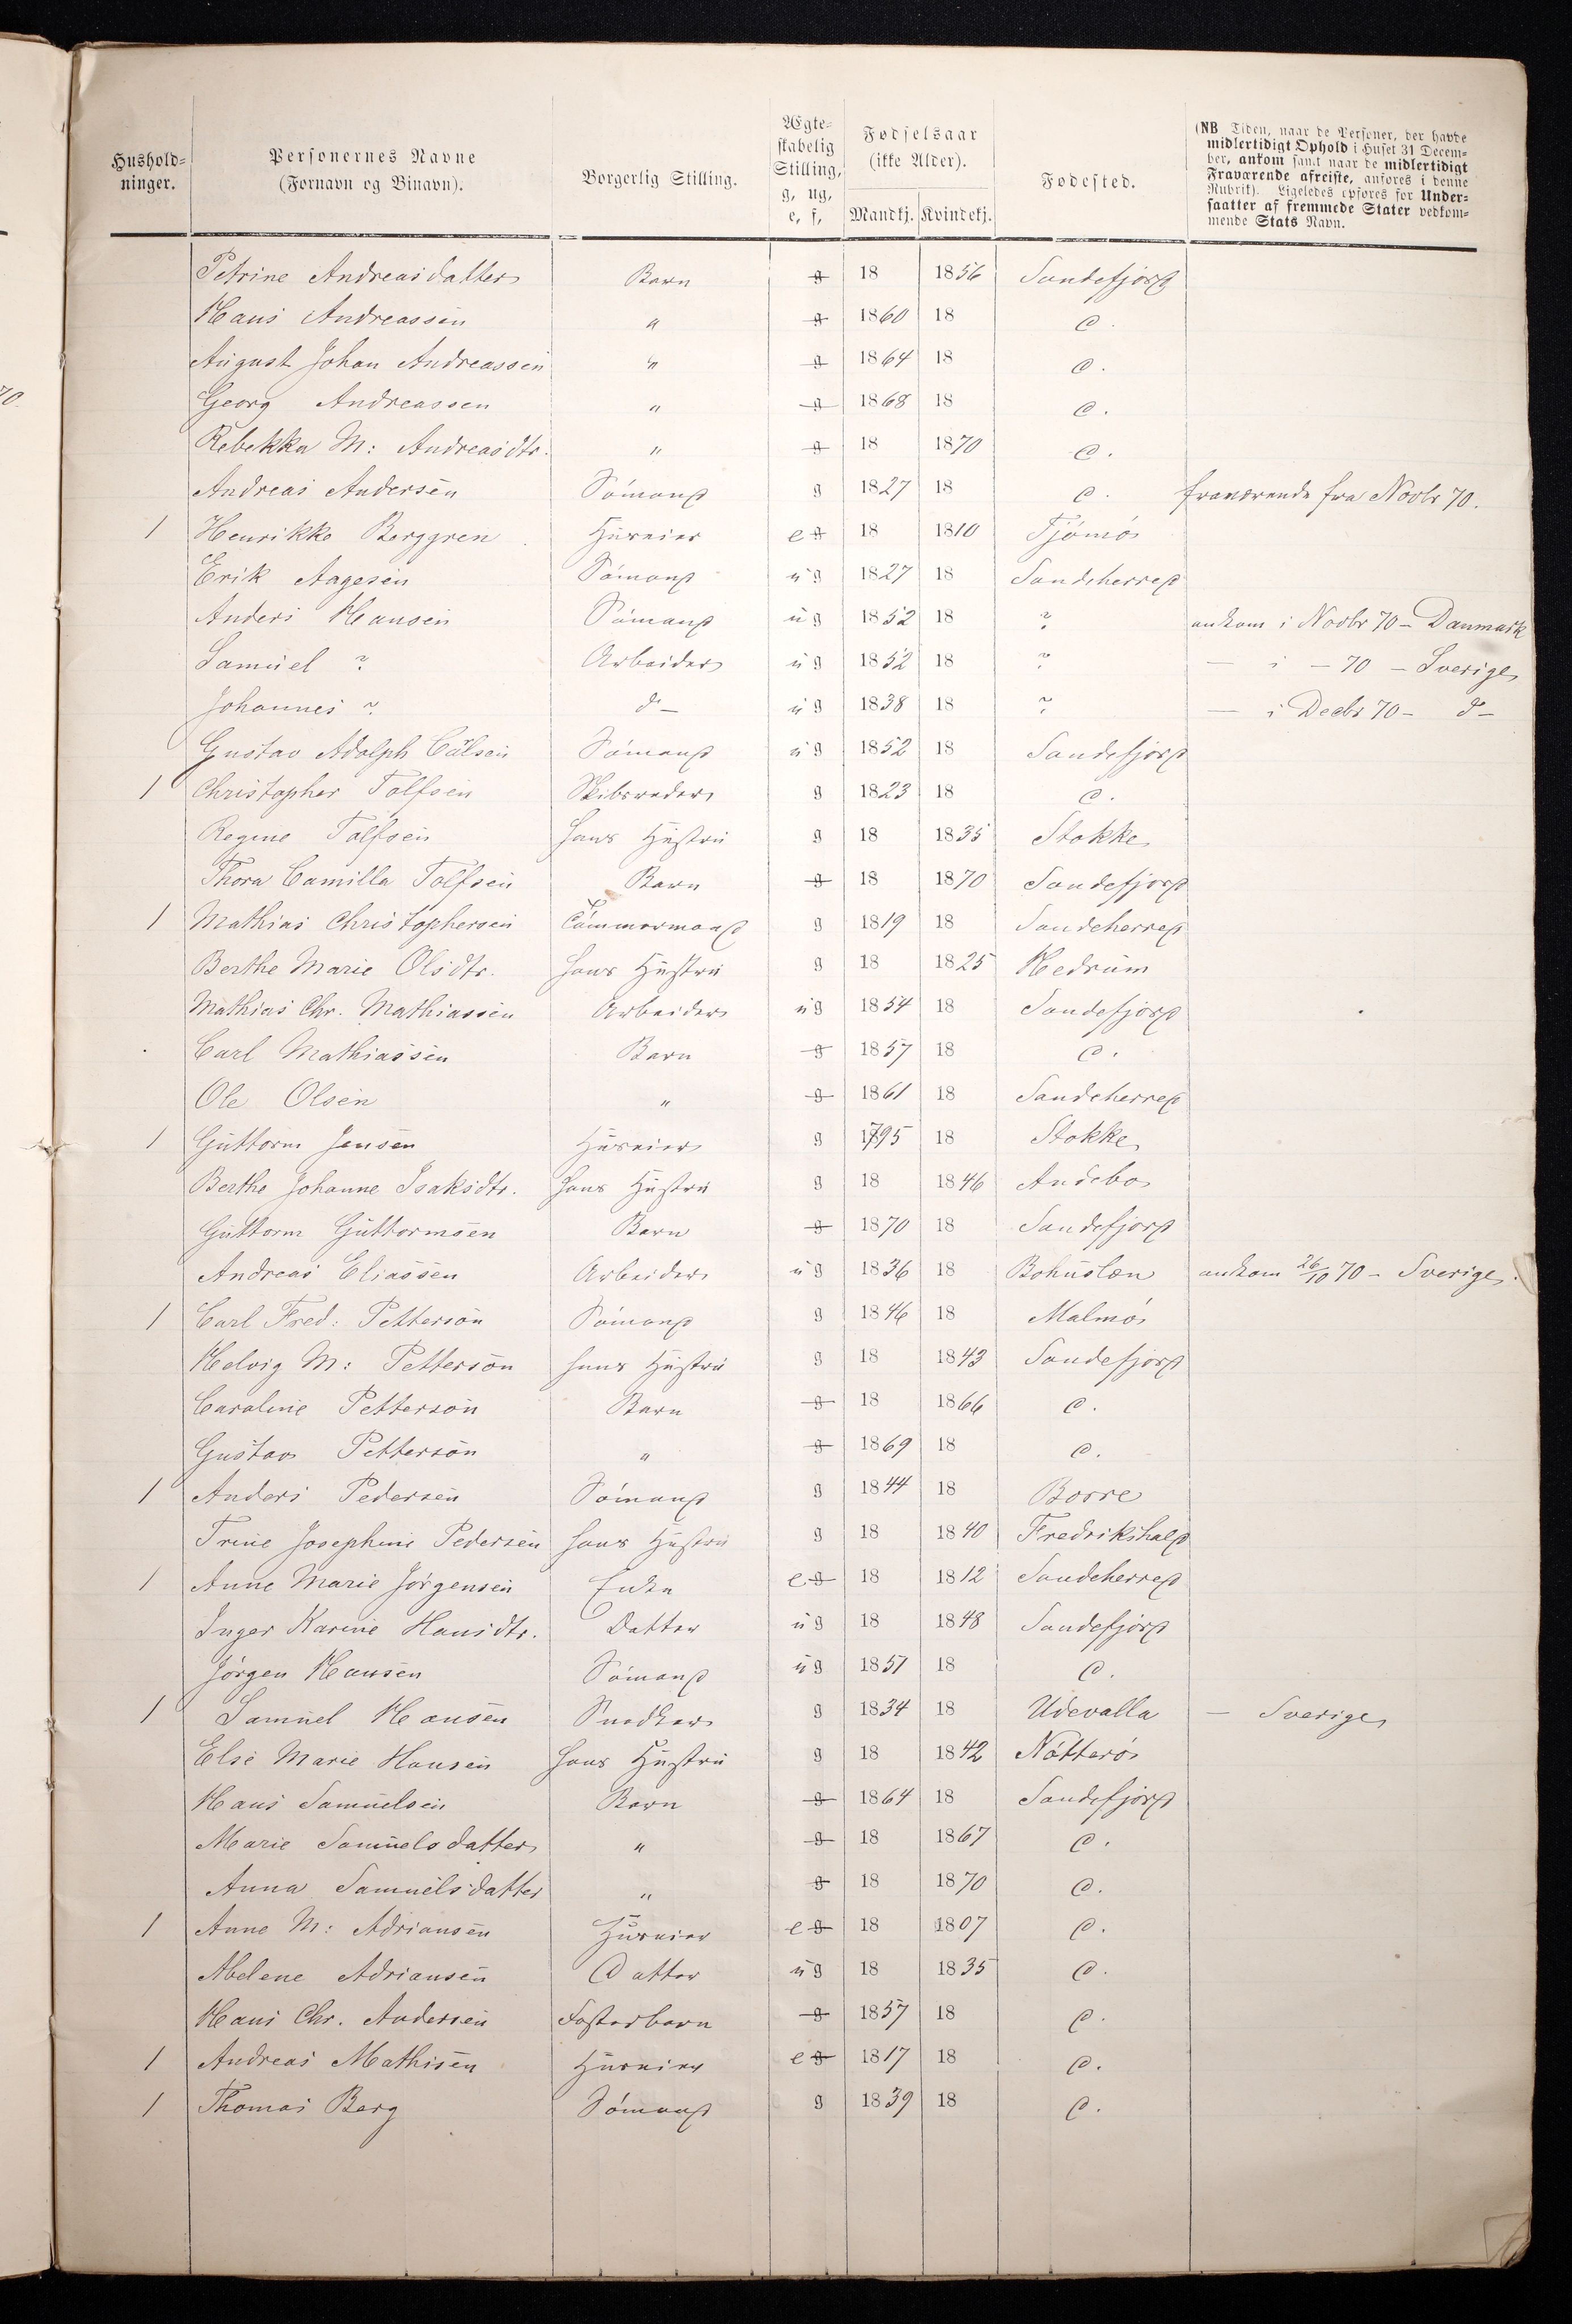 Hushold-
ninger.
Personernes Navne
(Fornavn og Binavn).
Borgerlig Stilling.
Ægte-
skabelig
Stilling,
g, ug,
e, f,
Fødselsaar
(ikke Alder).
Mandkj. Kvindekj.
Fødested.
(NB Tiden, naar de Personer, der havde
midlertidigt Ophold i Huset 31 Decem-
ber, ankom samt naar de midlertidigt
Fraværende afreiste, anføres i denne
Rubrik). Ligeledes opføres for Under-
saatter af fremmede Stater vedkom-
mende Stats Navn.
Petrine Andreasdatter Barn g 18 1856 Sandefjord
Hans Andreassen " g 1860 18 @.
August Johan Andreassen " g 1864 18 @.
Georg Andreassen " g 1868 18 @.
Rebekka M: Andreasdtr. " g 18 1870 @.
Andreas Andersen Sømand g 1827 18 @. fraværende fra Novbr 70.
1 Henrikke Berggren Huseier e g 18 1810 Tjömö
Erik Aagesen Sømand ug 1827 18 Sandeherred
Anders Hansen Sømand ug 1852 18 ? ankom i Novbr 70 - Danmark
Samuel ? Arbeider ug 1852 18 ? — i - 70 - Sverige
Johannes ? do ug 1838 18 ? — i Decbr 70 - do
Gustav Adolph Carlsen Sømand ug 1852 18 Sandefjord
1 Christopher Tolfsen Skibsreder g 1823 18 @.
Regine Tolfsen hans Hustru g 18 1835 Stokke
Thora Camilla Tolfsen Barn g 18 1870 Sandefjord
1 Mathias Christophersen Tömmermand g 1819 18 Sandeherred
Berthe Marie Olsdtr. hans Hustru g 18 1825 Hedrum
Mathias Chr. Mathiassen Arbeider ug 1854 18 Sandefjord
Carl Mathiassen Barn g 1857 18 @.
Ole Olsen " g 1861 18 Sandeherred
1 Guttorm Jensen Huseier g 1795 18 Stokke
Berthe Johanne Isaksdtr. hans Hustru g 18 1846 Andebo
Guttorm Guttormsen Barn g 1870 18 Sandefjord
Andreas Eliassen Arbeider ug 1836 18 Bohuslæn ankom 26/10 70 - Sverige.
1 Carl Fred: Petterson Sømand g 1846 18 Malmö
Helvig M: Petterson hans Hustru g 18 1843 Sandefjord
Caroline Petterson Barn g 18 1866 @.
Gustav Petterson " g 1869 18 @.
1 Anders Pedersen Sømand g 1844 18 Borre
Trine Josephine Pedersen hans Hustru g 18 1840 Fredrikshald
1 Anne Marie Jörgensen Enke e g 18 1812 Sandeherred
Inger Karine Hansdtr. Datter ug 18 1848 Sandefjord
Jörgen Hansen Sømand ug 1851 18 @.
1 Samuel Hansen Snedker g 1834 18 Udevalla — Sverige
Else Marie Hansen hans Hustru g 18 1842 Nötterö
Hans Samuelsen Barn g 1864 18 Sandefjord
Marie Samuelsdatter " g 18 1867 @.
Anna Samuelsdatter " g 18 1870 @.
1 Anne M: Adriansen Huseier e g 18 1807 @.
Abelene Adriansen Datter ug 18 1835 @.
Hans Chr. Andersen Fosterbarn g 1857 18 @.
1 Andreas Mathisen Huseier e g 1817 18 @.
1 Thomas Berg Sømand g 1839 18 @.